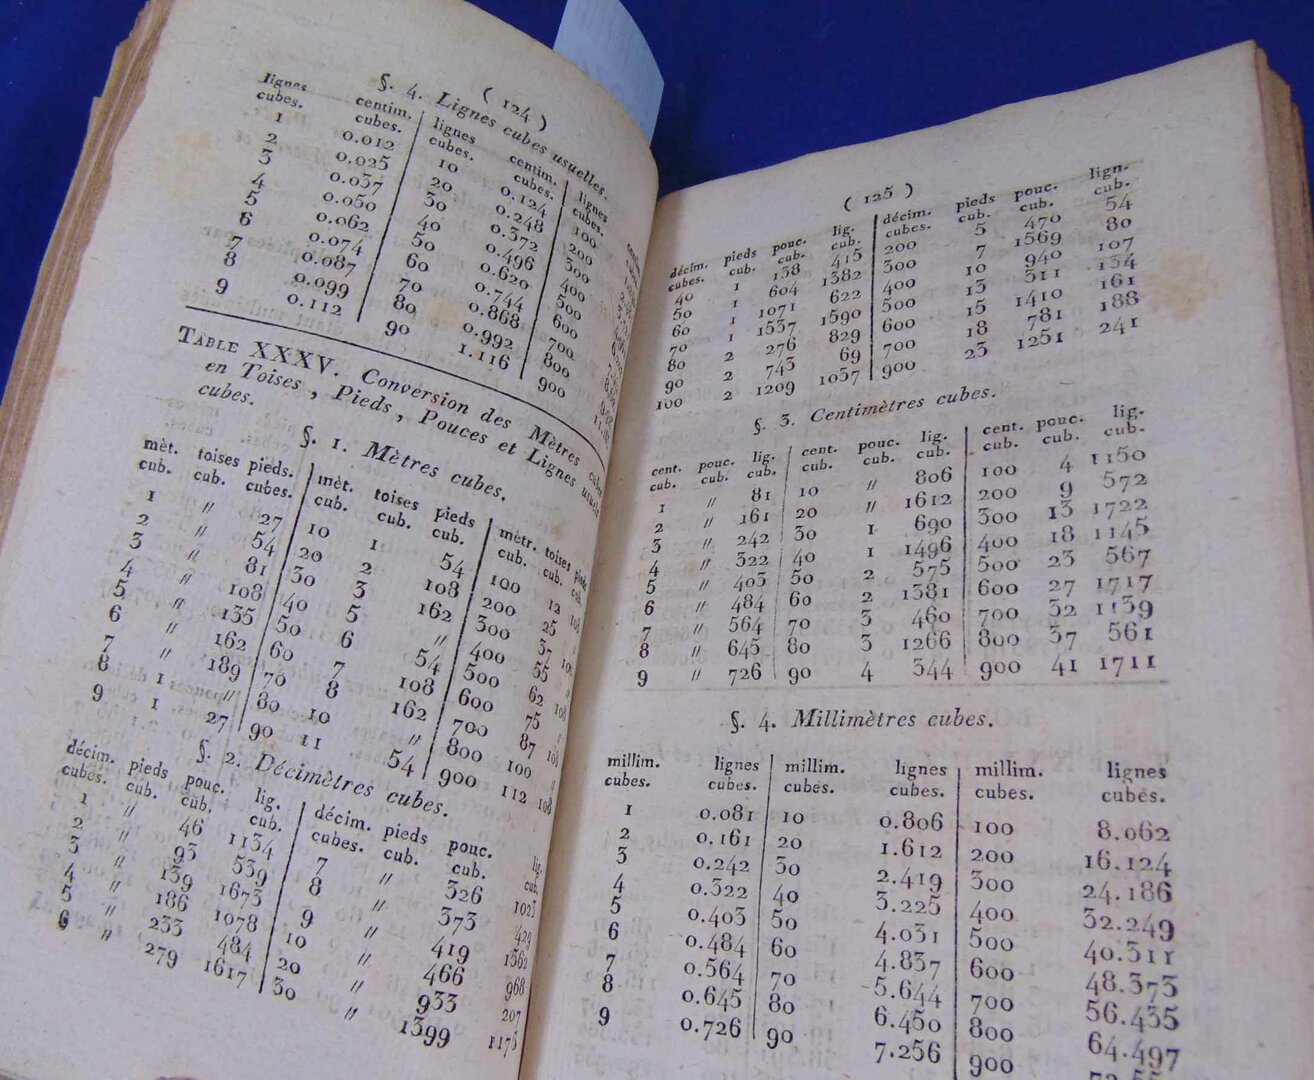 ( 124 )
§. 4. Lignes cubes usuelles.
lignes centim. lignes centim. lignes
cubes. cubes. cubes. cubes. cubes.
1 0.012 10 0.124 100
2 0.025 20 0.248 200
3 0.037 30 0.372 300
4 0.050 40 0.496 400
5 0.062 50 0.620 500
6 0.074 60 0.744 600
7 0.087 70 0.868 700
8 0.099 80 0.992 800
9 0.112 90 1.116 900
TABLE XXXV. Conversion des Mètres cubes
en Toises, Pieds, Pouces et Lignes
cubes.
§. 1. Mètres cubes.
mèt. toises pieds. mèt. toises pieds mètr. toises
cub. cub. cubes. cub. cub. cub. cub. cub.
1 〃 27 10 1 54 100 12 108
2 〃 54 20 2 108 200 25
3 〃 81 30 3 162 300 37 108
4 〃 108 40 5 〃 400 50
5 〃 135 50 6 54 500 62 108
6 〃 162 60 7 108 600 75
7 〃 189 70 8 162 700 87 108
8 1 〃 80 10 〃 800 100 〃
9 1 27 90 11 54 900 112 108
§. 2. Décimètres cubes.
décim. pieds pouc. lig. décim. pieds pouc. lig.
cubes. cub. cub. cub. cubes. cub. cub. cub.
1 〃 46 1134 7 〃 326 1023
2 〃 93 539 8 〃 373 429
3 〃 139 1673 9 〃 419 1562
4 〃 186 1078 10 〃 466 968
5 〃 233 484 20 〃 933 207
6 〃 279 1617 30 〃 1399 1175
( 125 )
décim. pieds pouc. lig. décim. pieds pouc. lign.
cubes. cub. cub. cub. cubes. cub. cub. cub.
40 1 138 415 200 5 470 54
50 1 604 1382 300 7 1569 80
60 1 1071 622 400 10 940 107
70 1 1537 1590 500 13 311 134
80 2 276 829 600 15 1410 161
90 2 743 69 700 18 781 188
100 2 1209 1037 900 23 1251 241
§. 3. Centimètres cubes.
cent. pouc. lig. cent. pouc. lig. cent. pouc. lig.
cub. cub. cub. cub. cub. cub. cub. cub. cub.
1 〃 81 10 〃 806 100 4 1150
2 〃 161 20 〃 1612 200 9 572
3 〃 242 30 1 690 300 13 1722
4 〃 322 40 1 1496 400 18 1145
5 〃 403 50 2 575 500 23 567
6 〃 484 60 2 1381 600 27 1717
7 〃 564 70 3 460 700 32 1139
8 〃 645 80 3 1266 800 37 561
9 〃 726 90 4 344 900 41 1711
§. 4. Millimètres cubes.
millim. lignes millim. lignes millim. lignes
cubes. cubes. cubes. cubes. cubes. cubes.
1 0.081 10 0.806 100 8.062
2 0.161 20 1.612 200 16.124
3 0.242 30 2.419 300 24.186
4 0.322 40 3.225 400 32.249
5 0.403 50 4.031 500 40.311
6 0.484 60 4.837 600 48.373
7 0.564 70 5.644 700 56.435
8 0.645 80 6.450 800 64.497
9 0.726 90 7.256 900